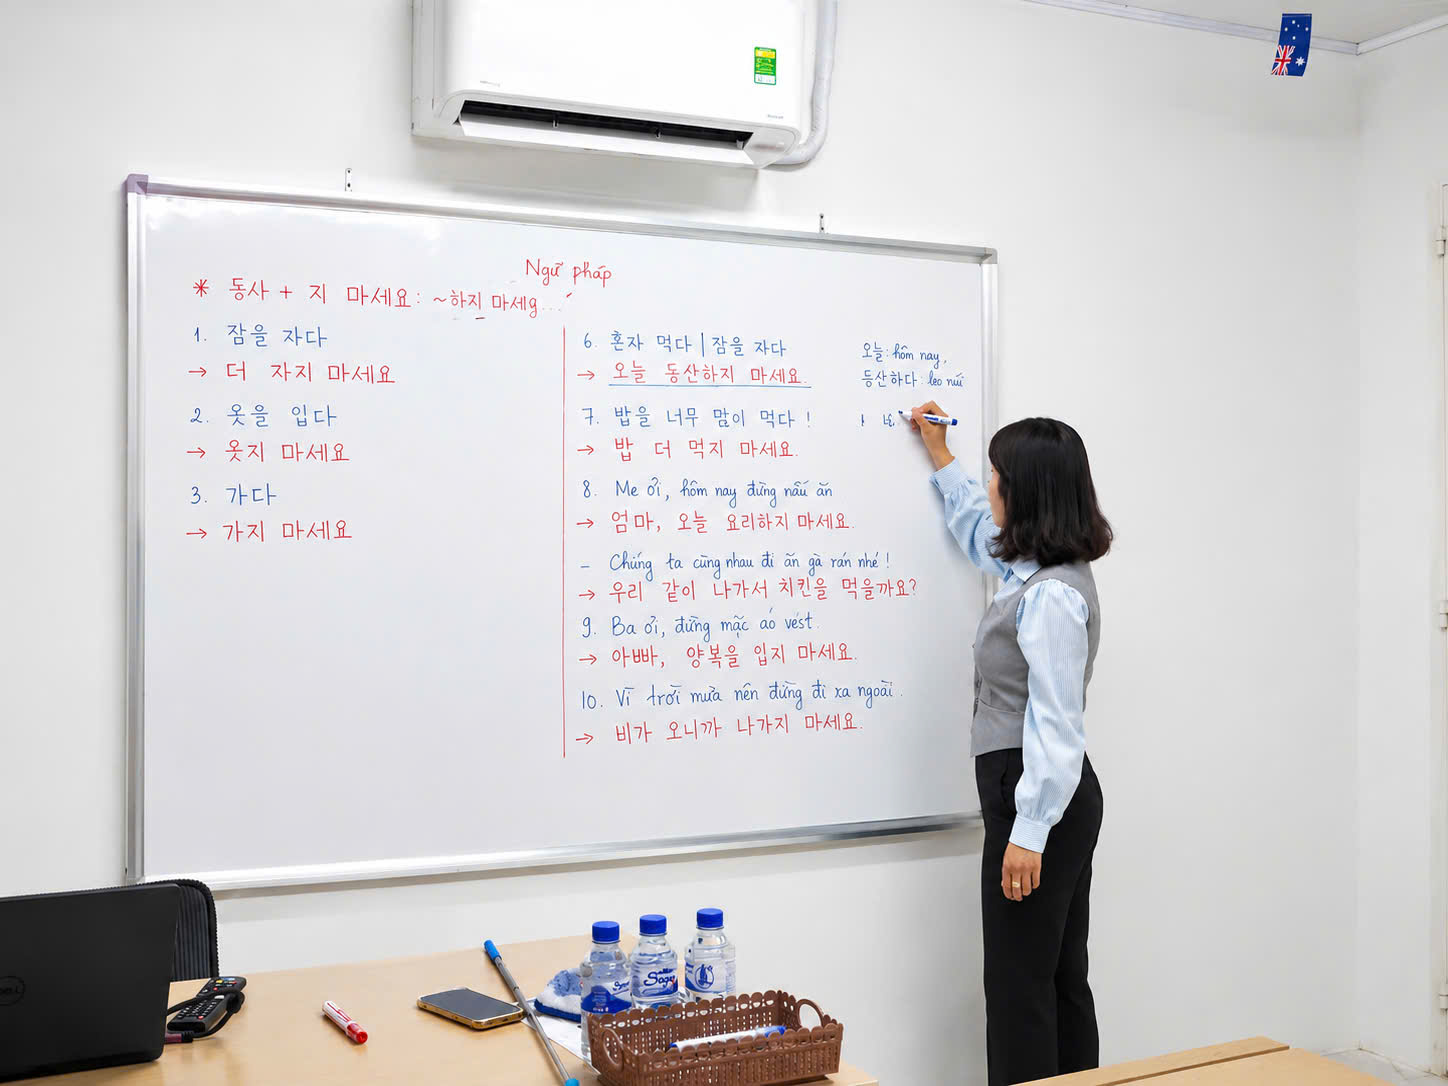 Ngữ pháp
* 동사 + 지 마세요: ~하지 마세
1. 잠을 자다
→ 더 자지 마세요
2. 옷을 입다
→ 옷지 마세요
3. 가다
→ 가지 마세요
6. 혼자 먹다 | 잠을 자다
→ 오늘 동산하지 마세요.
7. 밥을 너무 많이 먹다 !
→ 밥 더 먹지 마세요.
8. Mẹ ơi, hôm nay đừng nấu ăn
→ 엄마, 오늘 요리하지 마세요.
- Chúng ta cùng nhau đi ăn gà rán nhé !
→ 우리 같이 나가서 치킨을 먹을까요?
9. Ba ơi, đừng mặc áo vést.
→ 아빠, 양복을 입지 마세요.
10. Vì trời mưa nên đừng đi xa ngoài.
→ 비가 오니까 나가지 마세요.
오늘: hôm nay,
등산하다: leo núi